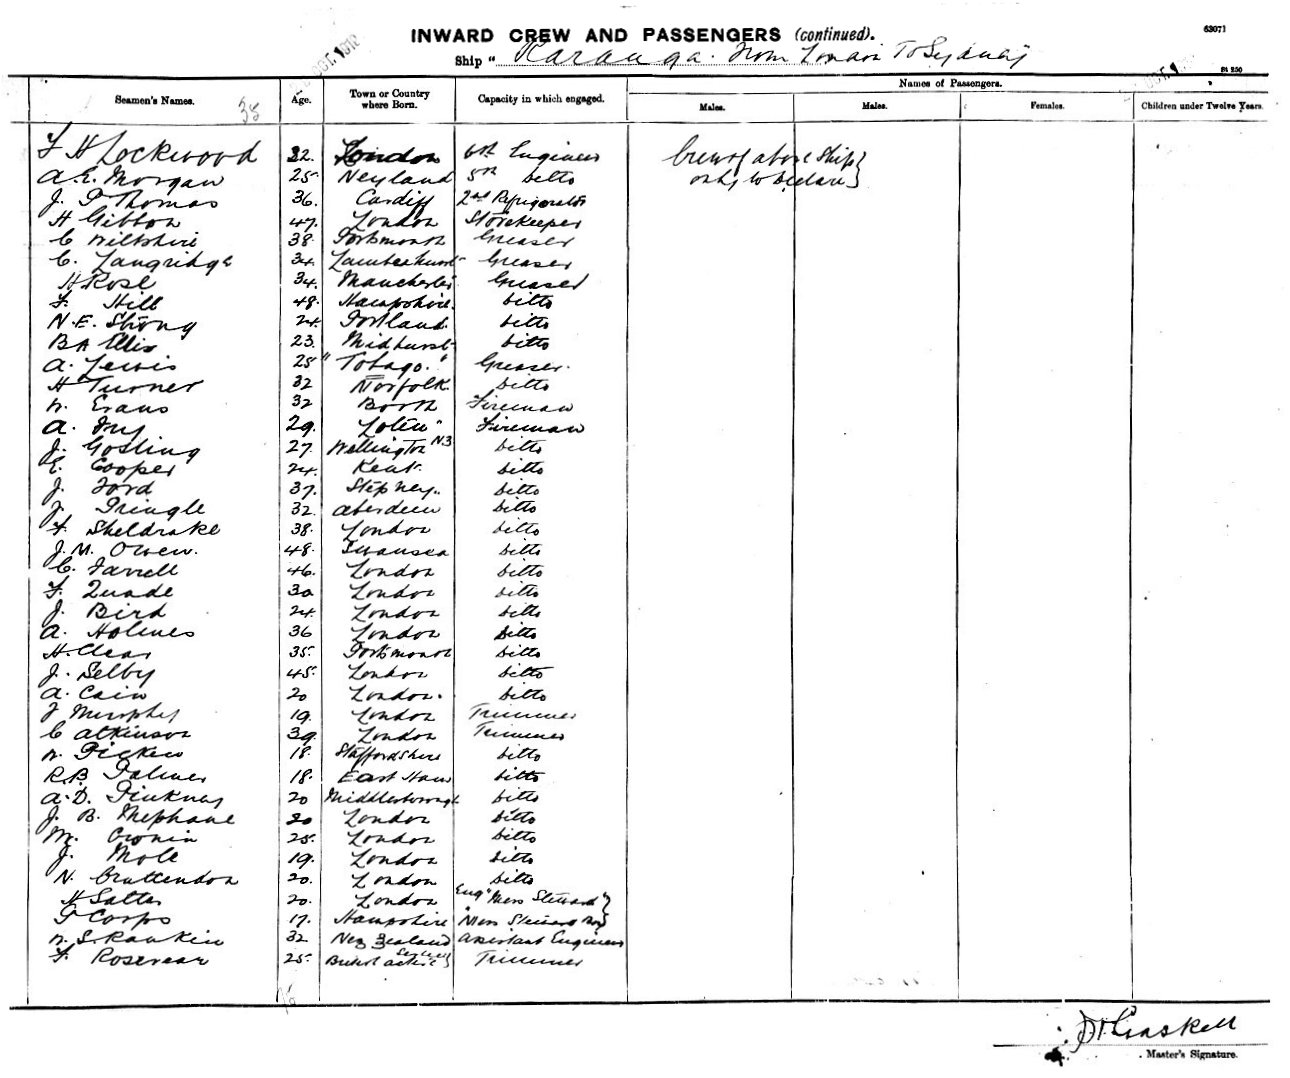 INWARD CREW AND PASSENGERS (continued).
63071
Ship " Karanga. From London To Sydney
St 250
Names of Passengers.
Seamen's Names. Age. Town or Country where Born. Capacity in which engaged. Males. Males. Females. Children under Twelve Years.
38
F H Lockwood 32. London 6th Engineer Crew of above Ship
A. E. Morgan 25 Neyland 5th ditto only to declare
J. P Thomas 36. Cardiff 2nd Refrigerator
H Gibbon 47. London Storekeeper
C Wiltshire 38 Portsmouth Greaser
C. Langridge 34. Lamberhurst Greaser
H Rose 34. Manchester Greaser
F. Hill 48. Hampshire. ditto
N. E. Strong 24. Portland. ditto
B A Ellis 23. Midhurst ditto
A. Lewis 25 "Tobago." Greaser.
H Turner 32 Norfolk. ditto
W. Evans 32 Booth Fireman
A. Fry 29. Fireman
J. Gosling 27. Wellington N.Z. ditto
E. Cooper 24. Kent. ditto
J. Ford 37. Stepney.. ditto
J. Pringle 32. Aberdeen ditto
F. Sheldrake 38. London ditto
J. M. Owen. 48. Swansea ditto
C. Farrell 46. London ditto
F. Quade 30 London ditto
J. Bird 24. London ditto
A. Holmes 36 London ditto
H. Clear 35. Portsmouth ditto
J. Selby 45. London ditto
A. Cain 20 London. ditto
J Murphy 19. London Trimmer
C Atkinson 39. London Trimmer
W. Picken 18. Staffordshire ditto
R. B. Palmer 18. East Ham ditto
A. D. Pinkney 20 Middlesborough ditto
J. B. Mephane 20 London ditto
M. Cronin 25. London ditto
J. Mole 19. London ditto
N. Cruttendon 20. London ditto
H Salter 20. London Eng" Mess Steward"
P Corps 17. Hampshire "Mess Steward Boy
W. S. Rankin 32 New Zealand Assistant Engineer
F. Rosevear 25. Trimmer
D H Gaskell
Master's Signature.